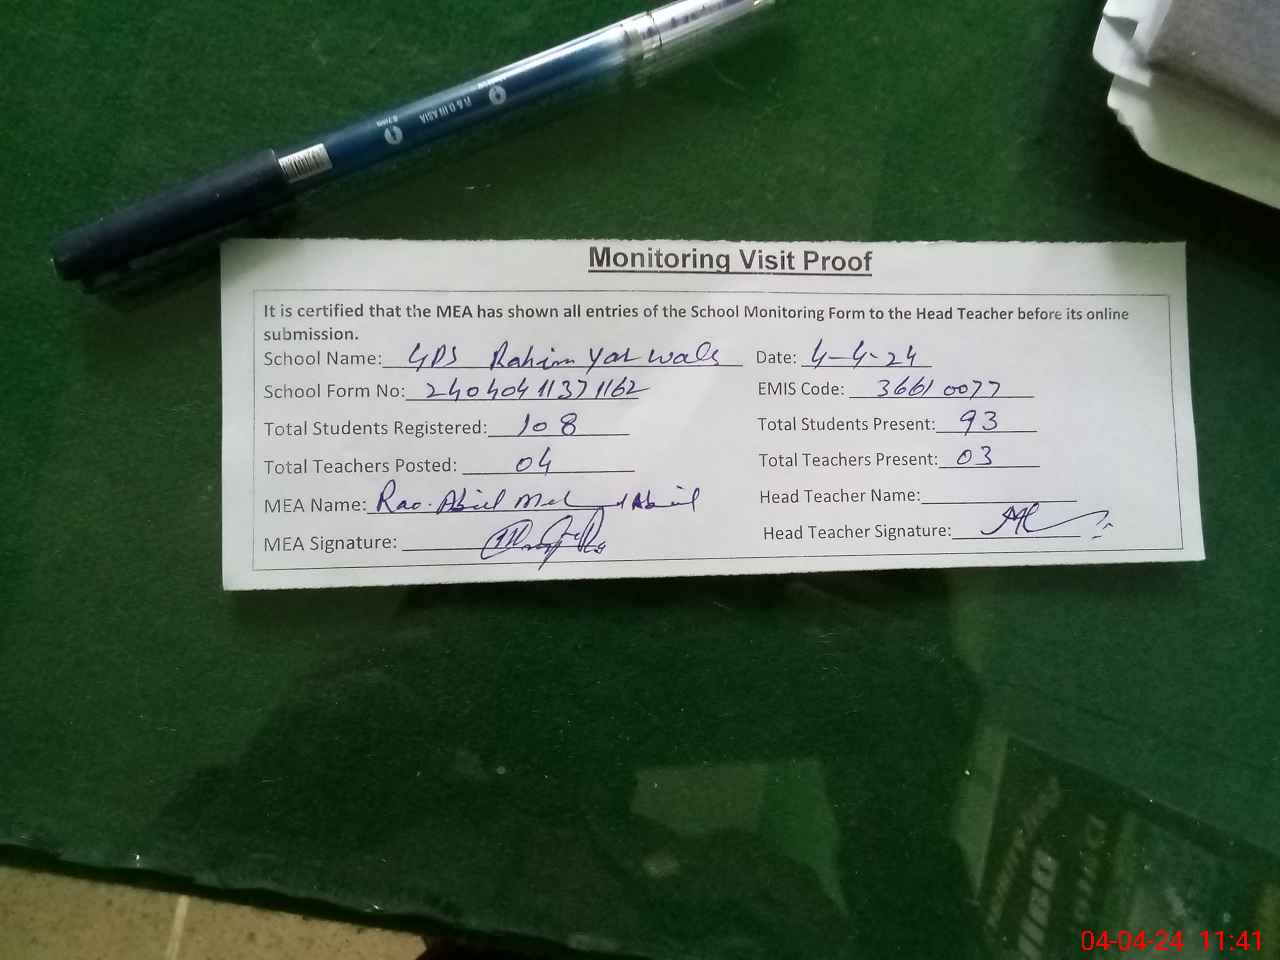 Monitoring Visit Proof
It is certified that the MEA has shown all entries of the School Monitoring Form to the Head Teacher before its online
submission.
School Name: GPS Rahim Yar Wala Date: 4-4-24
School Form No: 24040411371162 EMIS Code: 36610077
Total Students Registered: 108 Total Students Present: 93
Total Teachers Posted: 04 Total Teachers Present: 03
MEA Name: Rao. Head Teacher Name:
MEA Signature: Head Teacher Signature:
04-04-24 11:41